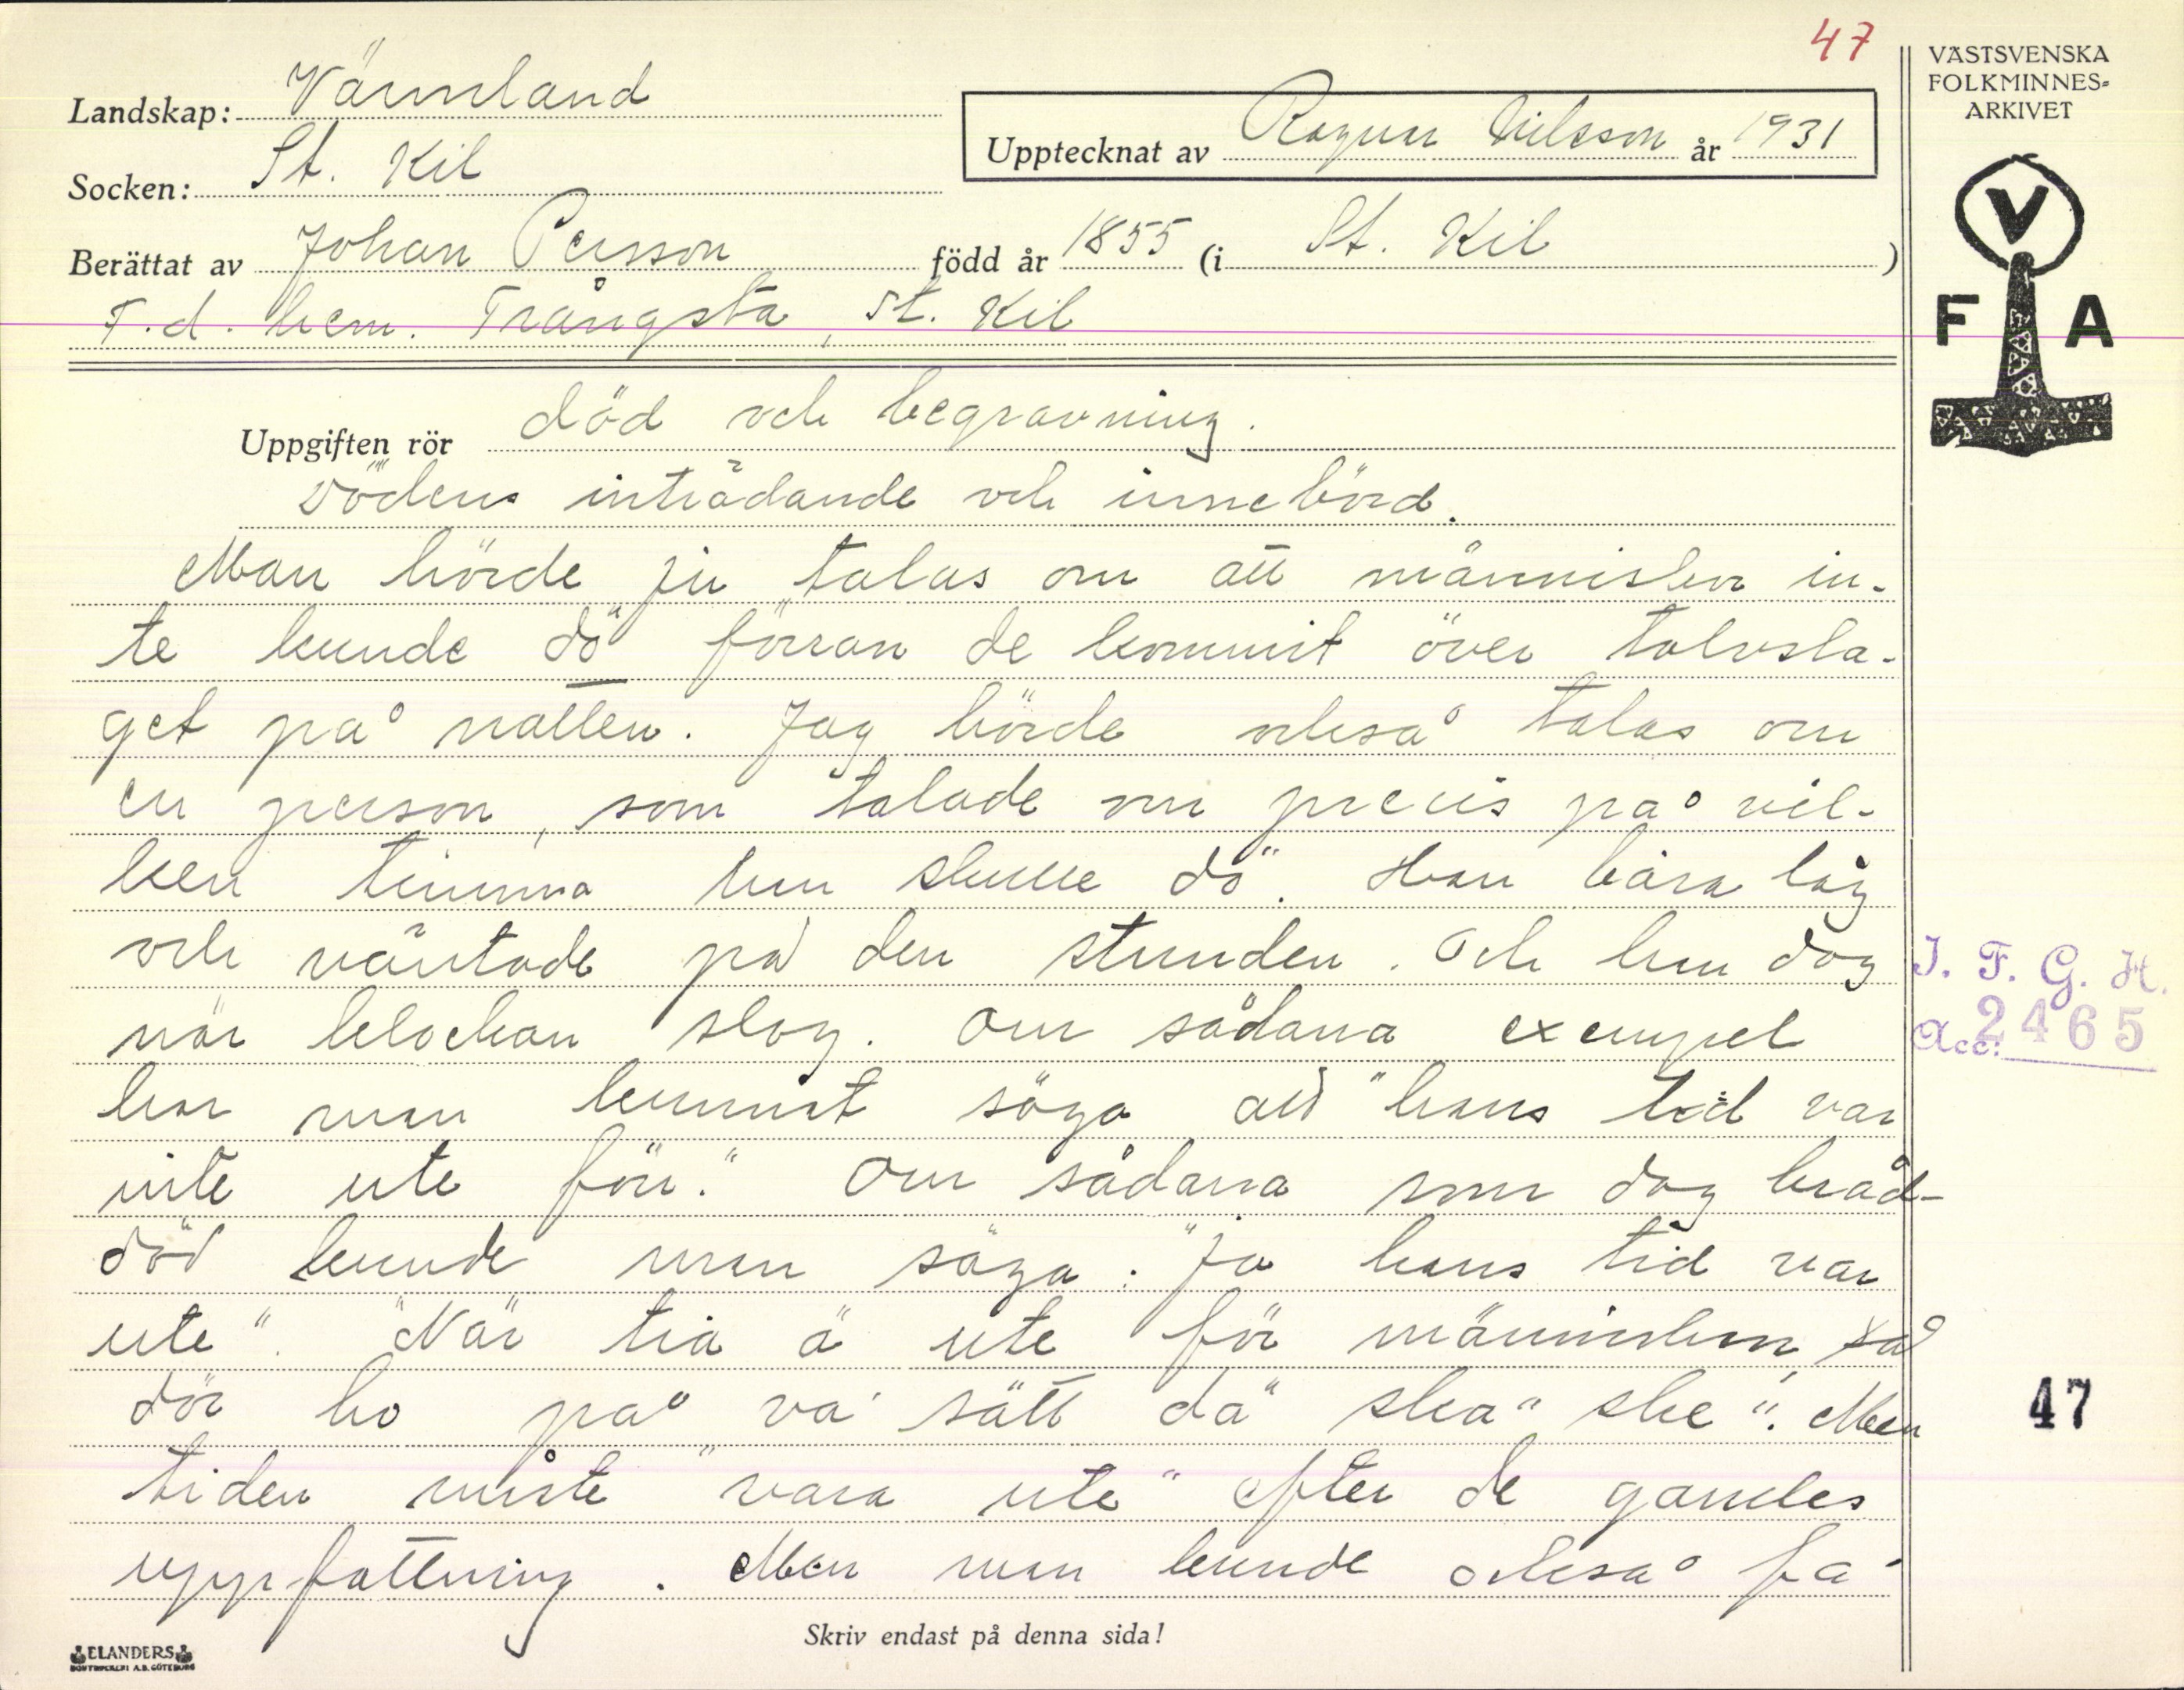 47
VÄSTSVENSKA
FOLKMINNES-
ARKIVET
Landskap: Värmland
Upptecknat av Ragnar Nilsson år 1931
Socken: St. Kil
Berättat av Johan Persson född år 1855 (i St. Kil)
F.d. hem. Trångsta, St. Kil
V
F A
Uppgiften rör död och begravning.
Dödens inträdande och innebörd.
Man hörde ju talas om att människor in-
te kunde dö förrän de kommit över tolvsla-
get på natten. Jag hörde också talas om
en person, som talade om precis på vil-
ken timma han skulle dö. Han bara låg
och väntade på den stunden. Och han dog
när klockan slog. Om sådana exempel
har man kunnat säga att "hans tid var
inte ute förr." Om sådana som dog bråd-
död kunde man säga: "ja hans tid var
ute". "När tia ä ute för människan, så
dör ho på va' sätt dä" ska" ske". Men
tiden måste "vara ute" efter de gamles
uppfattning. Men man kunde också få
I. F. G. H.
Acc: 2465
47
Skriv endast på denna sida!
ELANDERS
BOKTRYCKERI A.B. GÖTEBORG